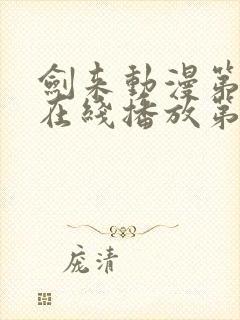 劍来動漫第
在綫播放第
庞清